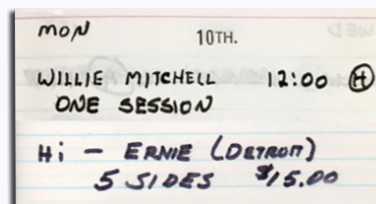 MON 10TH.
WILLIE MITCHELL 12:00 H
ONE SESSION
Hi - ERNIE (DETROIT)
5 SIDES $15.00